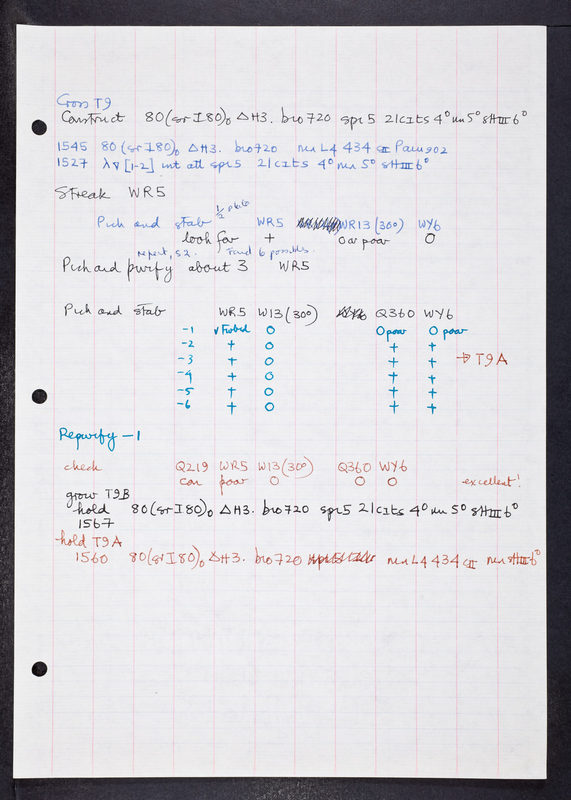 Cross T9
Construct 80(srI80)₀ ΔH3. bio720 spi5 21cIts 4° nin 5° sHIII 6°
1545 80(srI80)₀ ΔH3. bio720 nin L4 434 cII Pam902
1527 λ [1-2] int att spi5 21cIts 4° nin 5° sHIII 6°
Streak WR5
½ plate
Pick and stab WR5 WR13(30°) WY6
look for + O or poor O
repeat, 52. Found 6 possibles.
Pick and purify about 3 WR5
Pick and stab WR5 W13(30°) Q360 WY6
-1 O O poor O poor
-2 + O + +
-3 + O + + → T9A
-4 + O + +
-5 + O + +
-6 + O + +
Repurify -1
check Q219 WR5 W13(30°) Q360 WY6
con poor O O O excellent!
grow T9B
hold 80(srI80)₀ ΔH3. bio720 spi5 21cIts 4° nin 5° sHIII 6°
1567
hold T9A
1560 80(srI80)₀ ΔH3. bio720 nin L4 434 cII nin sHIII 6°